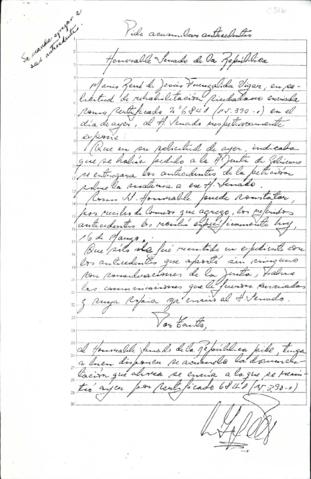 Se manda agregar a
sus antecedentes.
Pide acumular antecedentes
Honorable Senado de la República
Mario René de Jesús Fuenzalida, en so-
licitud de rehabilitación ciudadana enviada
como certificado Nº 6841 (15.390-0) en el
día de ayer, al H. Senado respetuosamente
expone:
Que en su solicitud de ayer, indicaba
que se había pedido a la H. Junta de Gobierno
se entregara los antecedentes de la petición
sobre la materia a ese H. Senado.
Como el Honorable puede constatar,
por recibo de Correos que agrego, los referidos
antecedentes los recibí hoy
16 de Marzo.
Que sólo fue remitido un expediente con
los antecedentes que aporté sin ninguna
de la Junta.
las comunicaciones que le fueron enviadas
y cuya copia envié al H. Senado.
Por tanto,
al Honorable Senado de la República pido, tenga
a bien disponer se acumule la documen-
tación que ahora se envía a la que se remi-
tió ayer por certificado 6841 (15.390-0)